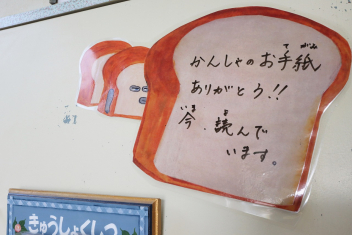 かんしゃのお手紙
ありがとう!!
今、読んで
います。
きゅうしょくしつ